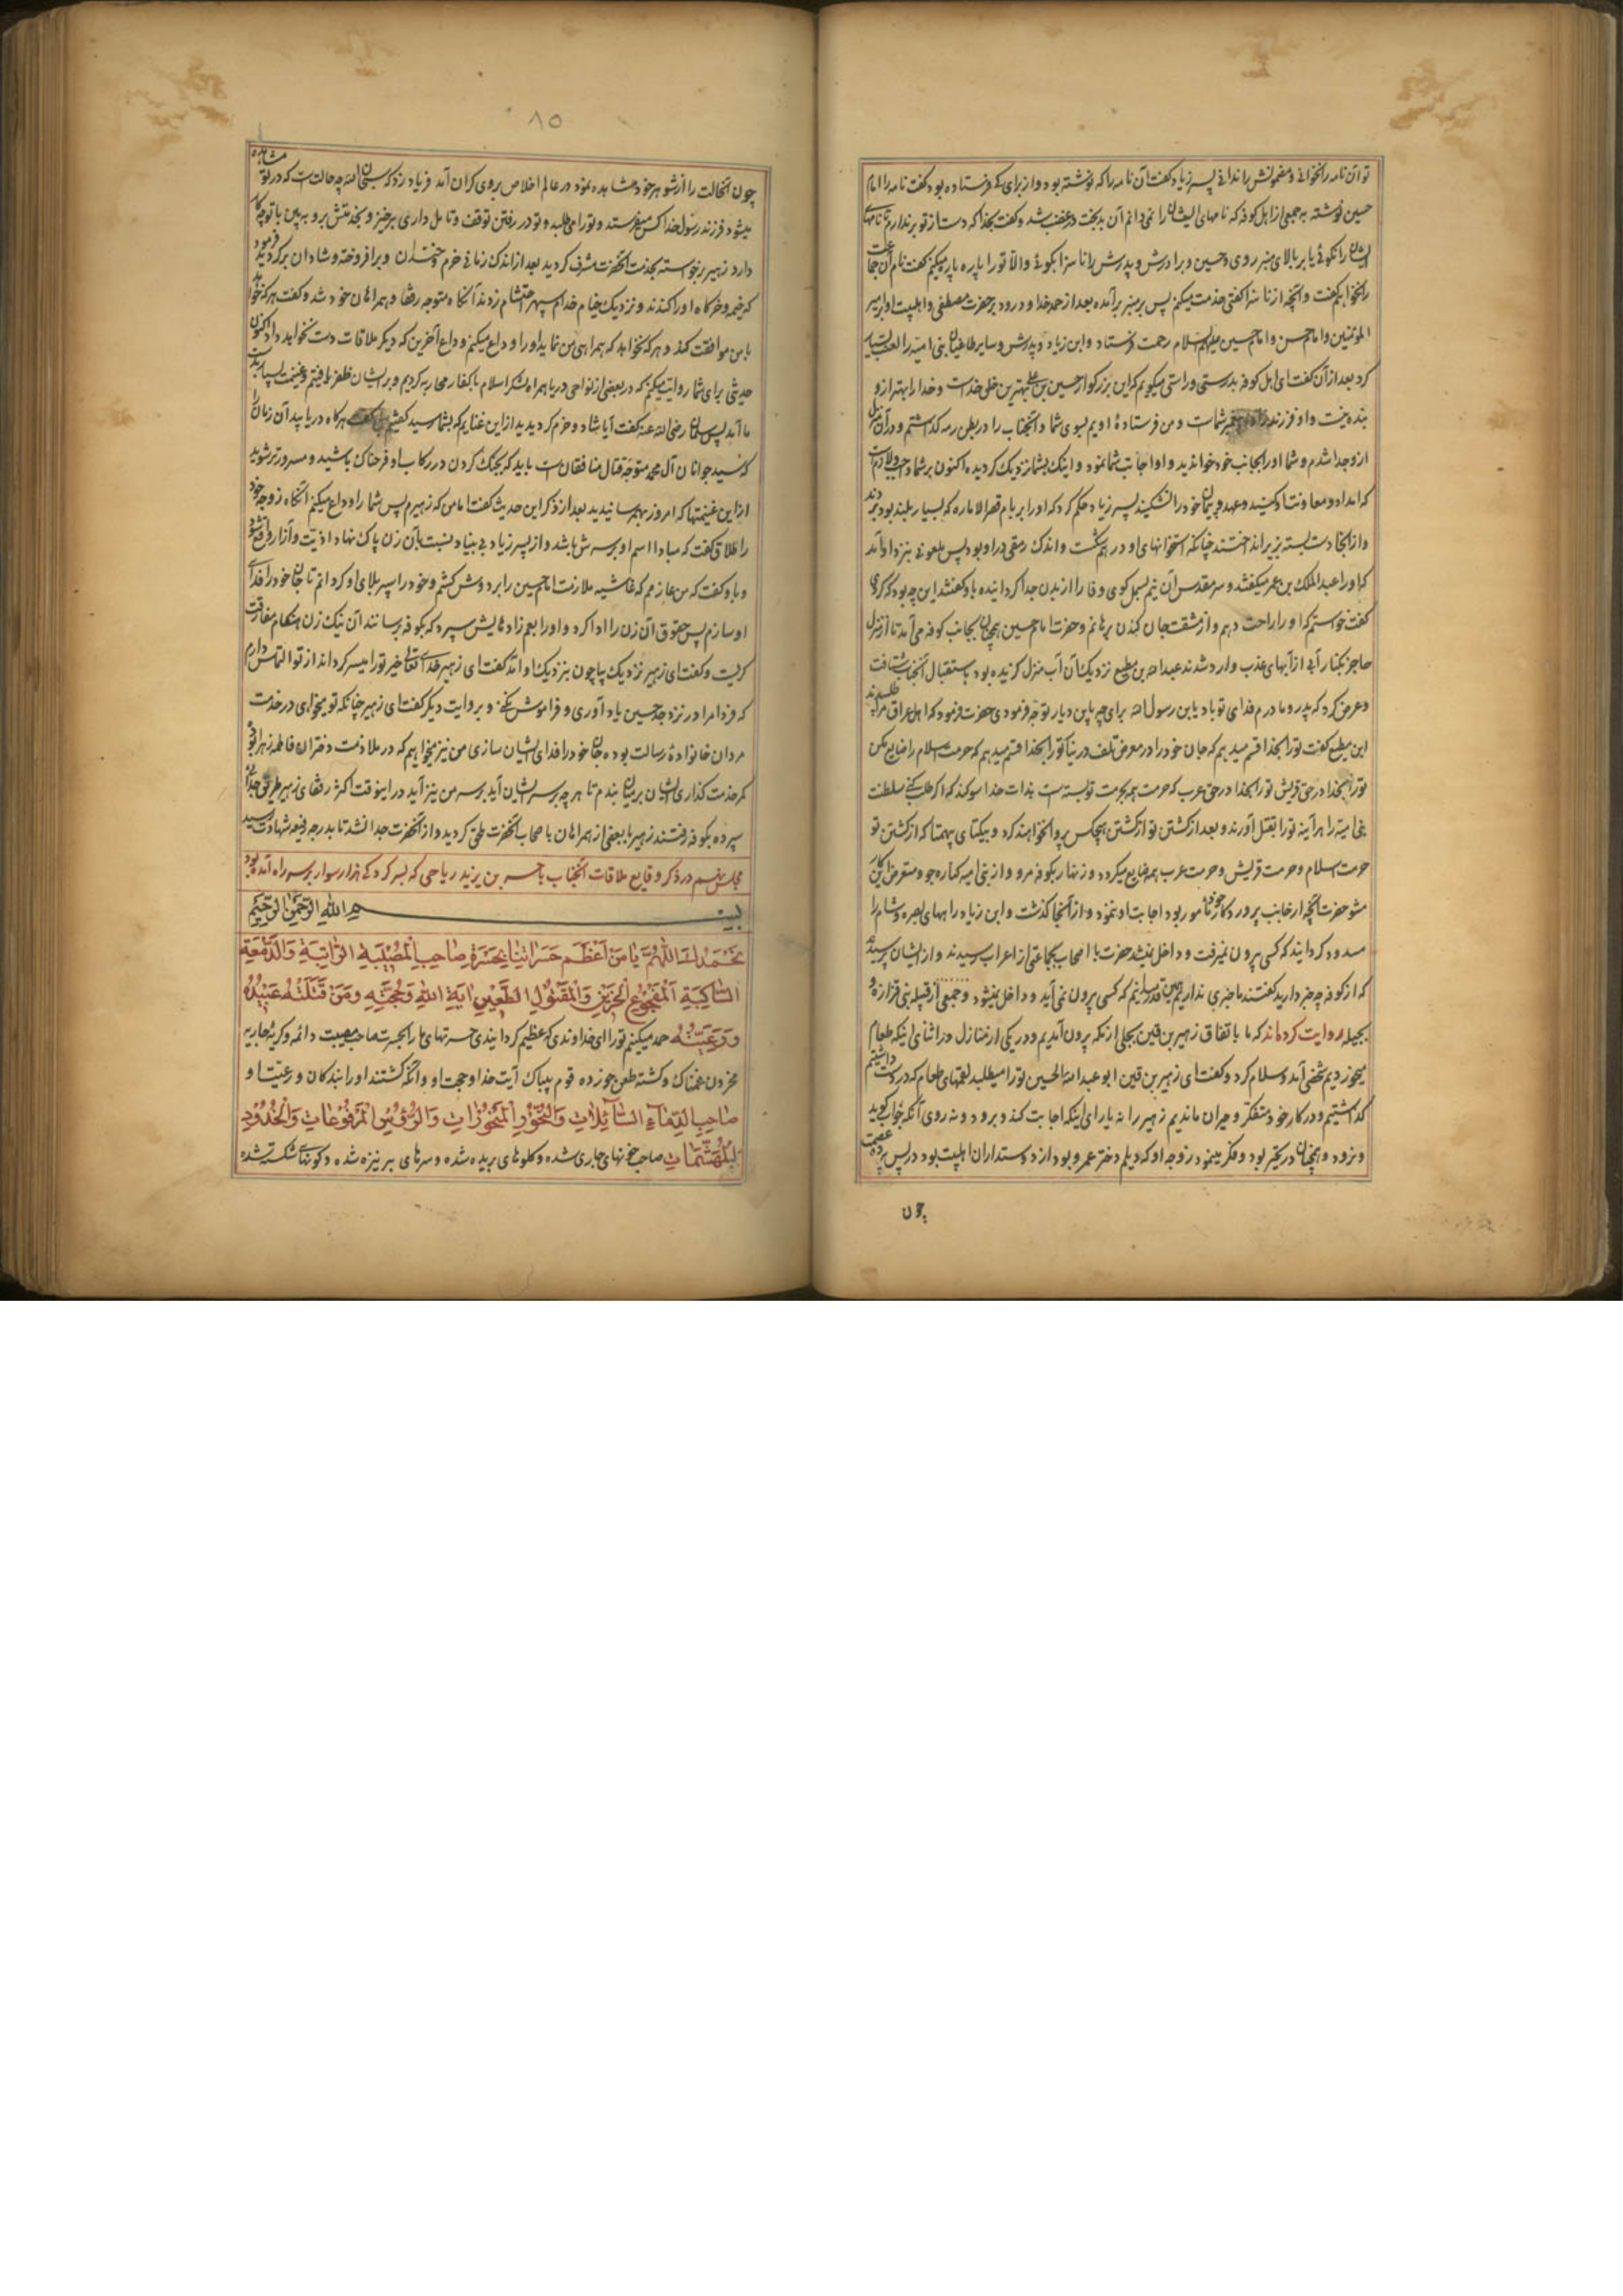 تو آن نامه را نخوانی و مضمونش را ندانی پسر زیاد گفت آن نامه را که نوشته بود و از برای که فرستاده بود گفت نامه را امام
حسین نوشته به جمعی از اهل کوفه که نامهای ایشان را نمی‌دانم آن بدبخت در غضب شد و گفت بخدا که دست از تو برندارم تا نامهای
ایشان را نگوئی یا بر بالای منبر روی و حسین و برادرش و پدرش را ناسزا بگوئی و الا تو را پاره پاره میکنم گفت نام آن جماعت
را نخواهم گفت و آنچه از ناسزا گفتی خدمت میکنم پس بر منبر برآمده بعد از حمد خدا و درود بر حضرت مصطفی و اهلبیت او بر امیر
المؤمنین و امام حسن و امام حسین علیهم السلام رحمت فرستاد و ابن زیاد و پدرش و سایر طاغیان بنی امیه را لعنت بسیار
کرد بعد از آن گفت ای اهل کوفه بدرستی و راستی میگویم که این بزرگوار حسین بن علی بهترین خلق خداست و خدا را بهتر از او
بنده نیست و او فرزند پیغمبر شماست و من فرستادهٔ اویم بسوی شما و آنجناب را در بطن رمه گذاشتم و در آن منزل
از او جدا شدم و شما او را بجانب خود خواندید و او اجابت شما نمود و اینک بشما نزدیک گردیده اکنون بر شما واجب و لازم است
که امداد و معاونت او کنید و عهد و پیمان خود را نشکنید پسر زیاد حکم کرد که او را بر بام قصر الاماره که بسیار بلند بود بردند
و از آنجا دست بسته بزیر انداختند چنانکه استخوانهای او در هم شکست و اندک رمقی در او بود پس ملعونی بنزد او آمد
که او را عبدالملک بن عمیر میگفتند و سر مقدس آن نیم بسمل کوی وفا را از بدن جدا گردانیده با او گفتند این چه بود که کردی
گفت خواستم که او را راحت دهم و از مشقت جان کندن برهانم و حضرت امام حسین همچنان بجانب کوفه می‌آمد تا از منزل
حاجز بکنار آبی از آبهای عذب وارد شدند عبدالله بن مطیع نزدیک آن آب منزل گزیده بود باستقبال آنجناب شتافت
و عرض کرد که پدر و مادرم فدای تو باد یابن رسول الله برای چه باین دیار توجه فرمودی حضرت فرمود که اهل عراق مرا طلبیدند
ابن مطیع گفت تو را بخدا قسم میدهم که جان خود را در معرض تلف درنیاور تو را بخدا قسم میدهم که حرمت اسلام را ضایع مکن
تو را بخدا در حق قریش تو را بخدا در حق عرب که حرمت همه بحرمت تو بسته است بذات خدا سوگند که اگر طلب کنی سلطنت
بنی امیه را هر آینه تو را بقتل آورند و بعد از کشتن تو از کشتن هیچکس پروا نخواهند کرد و بیکتای بیهمتا که از کشتن تو
حرمت اسلام و حرمت قریش و حرمت عرب همه ضایع میگردد و زنهار بکوفه مرو و از بنی امیه کناره جو و متعرض این کار
مشو حضرت آنچه از جانب پروردگار خود مامور بود اجابت او ننمود و از آنجا گذشت و ابن زیاد راههای بصره و شام را
مسدود گردانید که کسی بیرون نمیرفت و داخل نمیشد حضرت با اصحاب بجماعتی از اعراب رسیدند و از ایشان پرسیدند
که از کوفه چه خبر دارید گفتند ما خبری نداریم همین قدر میدانیم که کسی بیرون نمی‌آید و داخل نمیشود و جمعی از قبیله بنی فزاره و
بجیله روایت کرده‌اند که ما باتفاق زهیر بن قین بجلی از مکه بیرون آمدیم و در یکی از منازل در اثنای اینکه طعام
میخوردیم شخصی آمد و سلام کرد و گفت ای زهیر بن قین ابو عبدالله الحسین تو را میطلبد لقمهای طعام که در دست داشتیم
گذاشتیم و در کار خود متفکر و حیران ماندیم زهیر را نه یارای اینکه اجابت کند و برود و نه روی آنکه جواب گوید
و نرود و همچنان در تحیر بود و فکر مینمود زوجه او که دیلم دختر عمرو بود از دوستداران اهلبیت بود در پس پرده عصمت
چون
۸۵
چون آنحالت را از شوهر خود مشاهده نمود در عالم اخلاص بر وی گران آمد فریاد زد که سبحان الله چه حالت است که در تو مشاهده
میشود فرزند رسول خدا کس میفرستد و تو را می‌طلبد و تو در رفتن توقف و تامل داری برخیز و بخدمتش برو ببین با تو چه کار
دارد زهیر برخواسته بخدمت آنحضرت مشرف گردید بعد از اندک زمانی خرم و خندان و برافروخته و شادان برگردید فرمود
که خیمه و خرگاه او را کندند و نزدیک خیام خدام سپهر احتشام زدند آنگاه متوجه رفقا و همراهان خود شد و گفت هر که خواهد
با من موافقت کند و هر که نخواهد که همراهی من نماید او را وداع میکنم وداع آخرین که دیگر ملاقات دست نخواهد داد اکنون
حدیثی برای شما روایت میکنم که در بعضی از نواحی دریا همراه لشکر اسلام با کفار محاربه کردیم و بر ایشان ظفر یافتیم و غنیمت بسیار بدست
ما آمد پس سلمان رضی الله عنه گفت آیا شاد و خرم گردیدید از این غنایم که بشما رسید گفتیم بلی گفت هرگاه دریابید آن زمان را
که سید جوانان آل محمد متوجه قتال منافقان است باید که بجنگ کردن در رکاب او فرحناک باشید و مسرورتر شوید
از این غنیمتها که امروز بهم رسانیدید بعد از ذکر این حدیث گفت اما من که زهیرم پس شما را وداع میکنم آنگاه زوجه خود
را طلاق گفت که مبادا اسم او بر سرش باشد و از پسر زیاد بی بنیاد نسبت بآن زن پاک نهاد اذیت و آزار واقع شود
و با او گفت که من عازمم که غاشیه ملازمت امام حسین را بر دوش کشم و خود را سپر بلای او گردانم تا جان خود را فدای
او سازم پس حقوق آن زن را ادا کرد و او را بعم زاده‌ایش سپرد که بکوفه برسانند آن نیک زن هنگام مفارقت
گریست و گفت ای زهیر نزدیک بیا چون بنزدیک او آمد گفت ای زهیر خدای تعالی خیر تو را میسر گرداند از تو التماس دارم
که فردا مرا در نزد جد حسین یاد آوری و فراموش نکنی و بروایت دیگر گفت ای زهیر چنانکه تو میخواهی در خدمت
مردان خانوادهٔ رسالت بوده جان خود را فدای ایشان سازی من نیز میخواهم که در ملازمت دختران فاطمه زهرا بوده
کمر خدمت گذاری ایشان بر میان بندم تا هر چه بر سر ایشان آید بر سر من نیز آید در اینوقت اکثر رفقای زهیر طریق جدائی
سپرده بکوفه رفتند زهیر با بعضی از همراهان باصحاب آنحضرت ملحق گردید و از آنحضرت جدا نشد تا بدرجه رفیعه شهادت رسید
مجلس در ذکر وقایع ملاقات آنجناب با حر بن یزید ریاحی که بسرکردگی هزار سوار بر سر راه آمده بود
بسم الله الرحمن الرحیم
نَحْمَدُكَ اللّٰهُمَّ یا مَنْ اَعْظَمَ حَسَراتِنا بِحَسْرَةِ صاحِبِ الْمُصیبَةِ الرّاتِبَةِ وَالدَّمْعَةِ
السّاكِبَةِ الْمَفْجُوعِ الْحَزینِ وَالْمَقْتُولِ الطَّعینِ ایَةِ اللهِ وَحُجَّتِهِ وَمَنْ قَتَلَتْهُ عَبیدُهُ
وَرَعِیَّتُهُ حمد میکنیم تو را ای خداوندی که عظیم گردانیدی حسرتهای ما را بحسرت صاحب مصیبت دائمه و گریه جاریه
محزون غمناک و کشته طعن خورده قوم بیباک آیت خدا و حجت او و آنکه کشتند او را بندگان و رعیت او
صاحِبِ الدِّماءِ السّائِلاتِ وَالنُّحُورِ الْمَنْحُوراتِ وَالرُّؤُسِ الْمَرْفُوعاتِ وَالْخُدُودِ
الْمُهَشَّماتِ صاحب خونهای جاری شده و گلوهای بریده شده و سرهای بر نیزه شده و گونهای شکسته شده